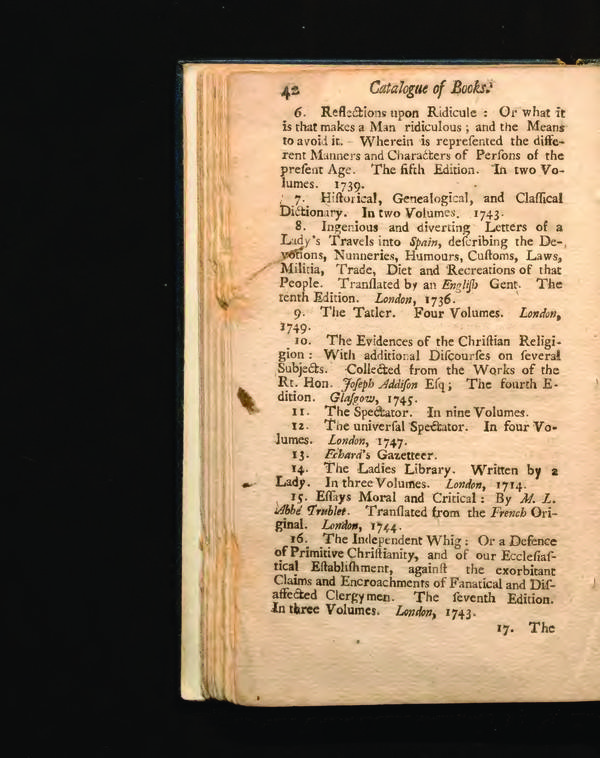 42 Catalogue of Books.
6. Reflections upon Ridicule : Or what it
is that makes a Man ridiculous ; and the Means
to avoid it. Wherein is repreſented the diffe-
rent Manners and Characters of Perſons of the
preſent Age. The fifth Edition. In two Vo-
lumes. 1739.
7. Hiſtorical, Genealogical, and Claſſical
Dictionary. In two Volumes. 1743.
8. Ingenious and diverting Letters of a
Lady's Travels into Spain, deſcribing the De-
votions, Nunneries, Humours, Cuſtoms, Laws,
Militia, Trade, Diet and Recreations of that
People. Tranſlated by an Engliſh Gent. The
tenth Edition. London, 1736.
9. The Tatler. Four Volumes. London,
1749.
10. The Evidences of the Chriſtian Religi-
gion : With additional Diſcourſes on ſeveral
Subjects. Collected from the Works of the
Rt. Hon. Joſeph Addiſon Eſq; The fourth E-
dition. Glaſgow, 1745.
11. The Spectator. In nine Volumes.
12. The univerſal Spectator. In four Vo-
lumes. London, 1747.
13. Echard's Gazetteer.
14. The Ladies Library. Written by a
Lady. In three Volumes. London, 1714.
15. Eſſays Moral and Critical : By M. L.
Abbé Trublet. Tranſlated from the French Ori-
ginal. London, 1744.
16. The Independent Whig : Or a Defence
of Primitive Chriſtianity, and of our Eccleſiaſ-
tical Eſtabliſhment, againſt the exorbitant
Claims and Encroachments of Fanatical and Diſ-
affected Clergymen. The ſeventh Edition.
In three Volumes. London, 1743.
17. The